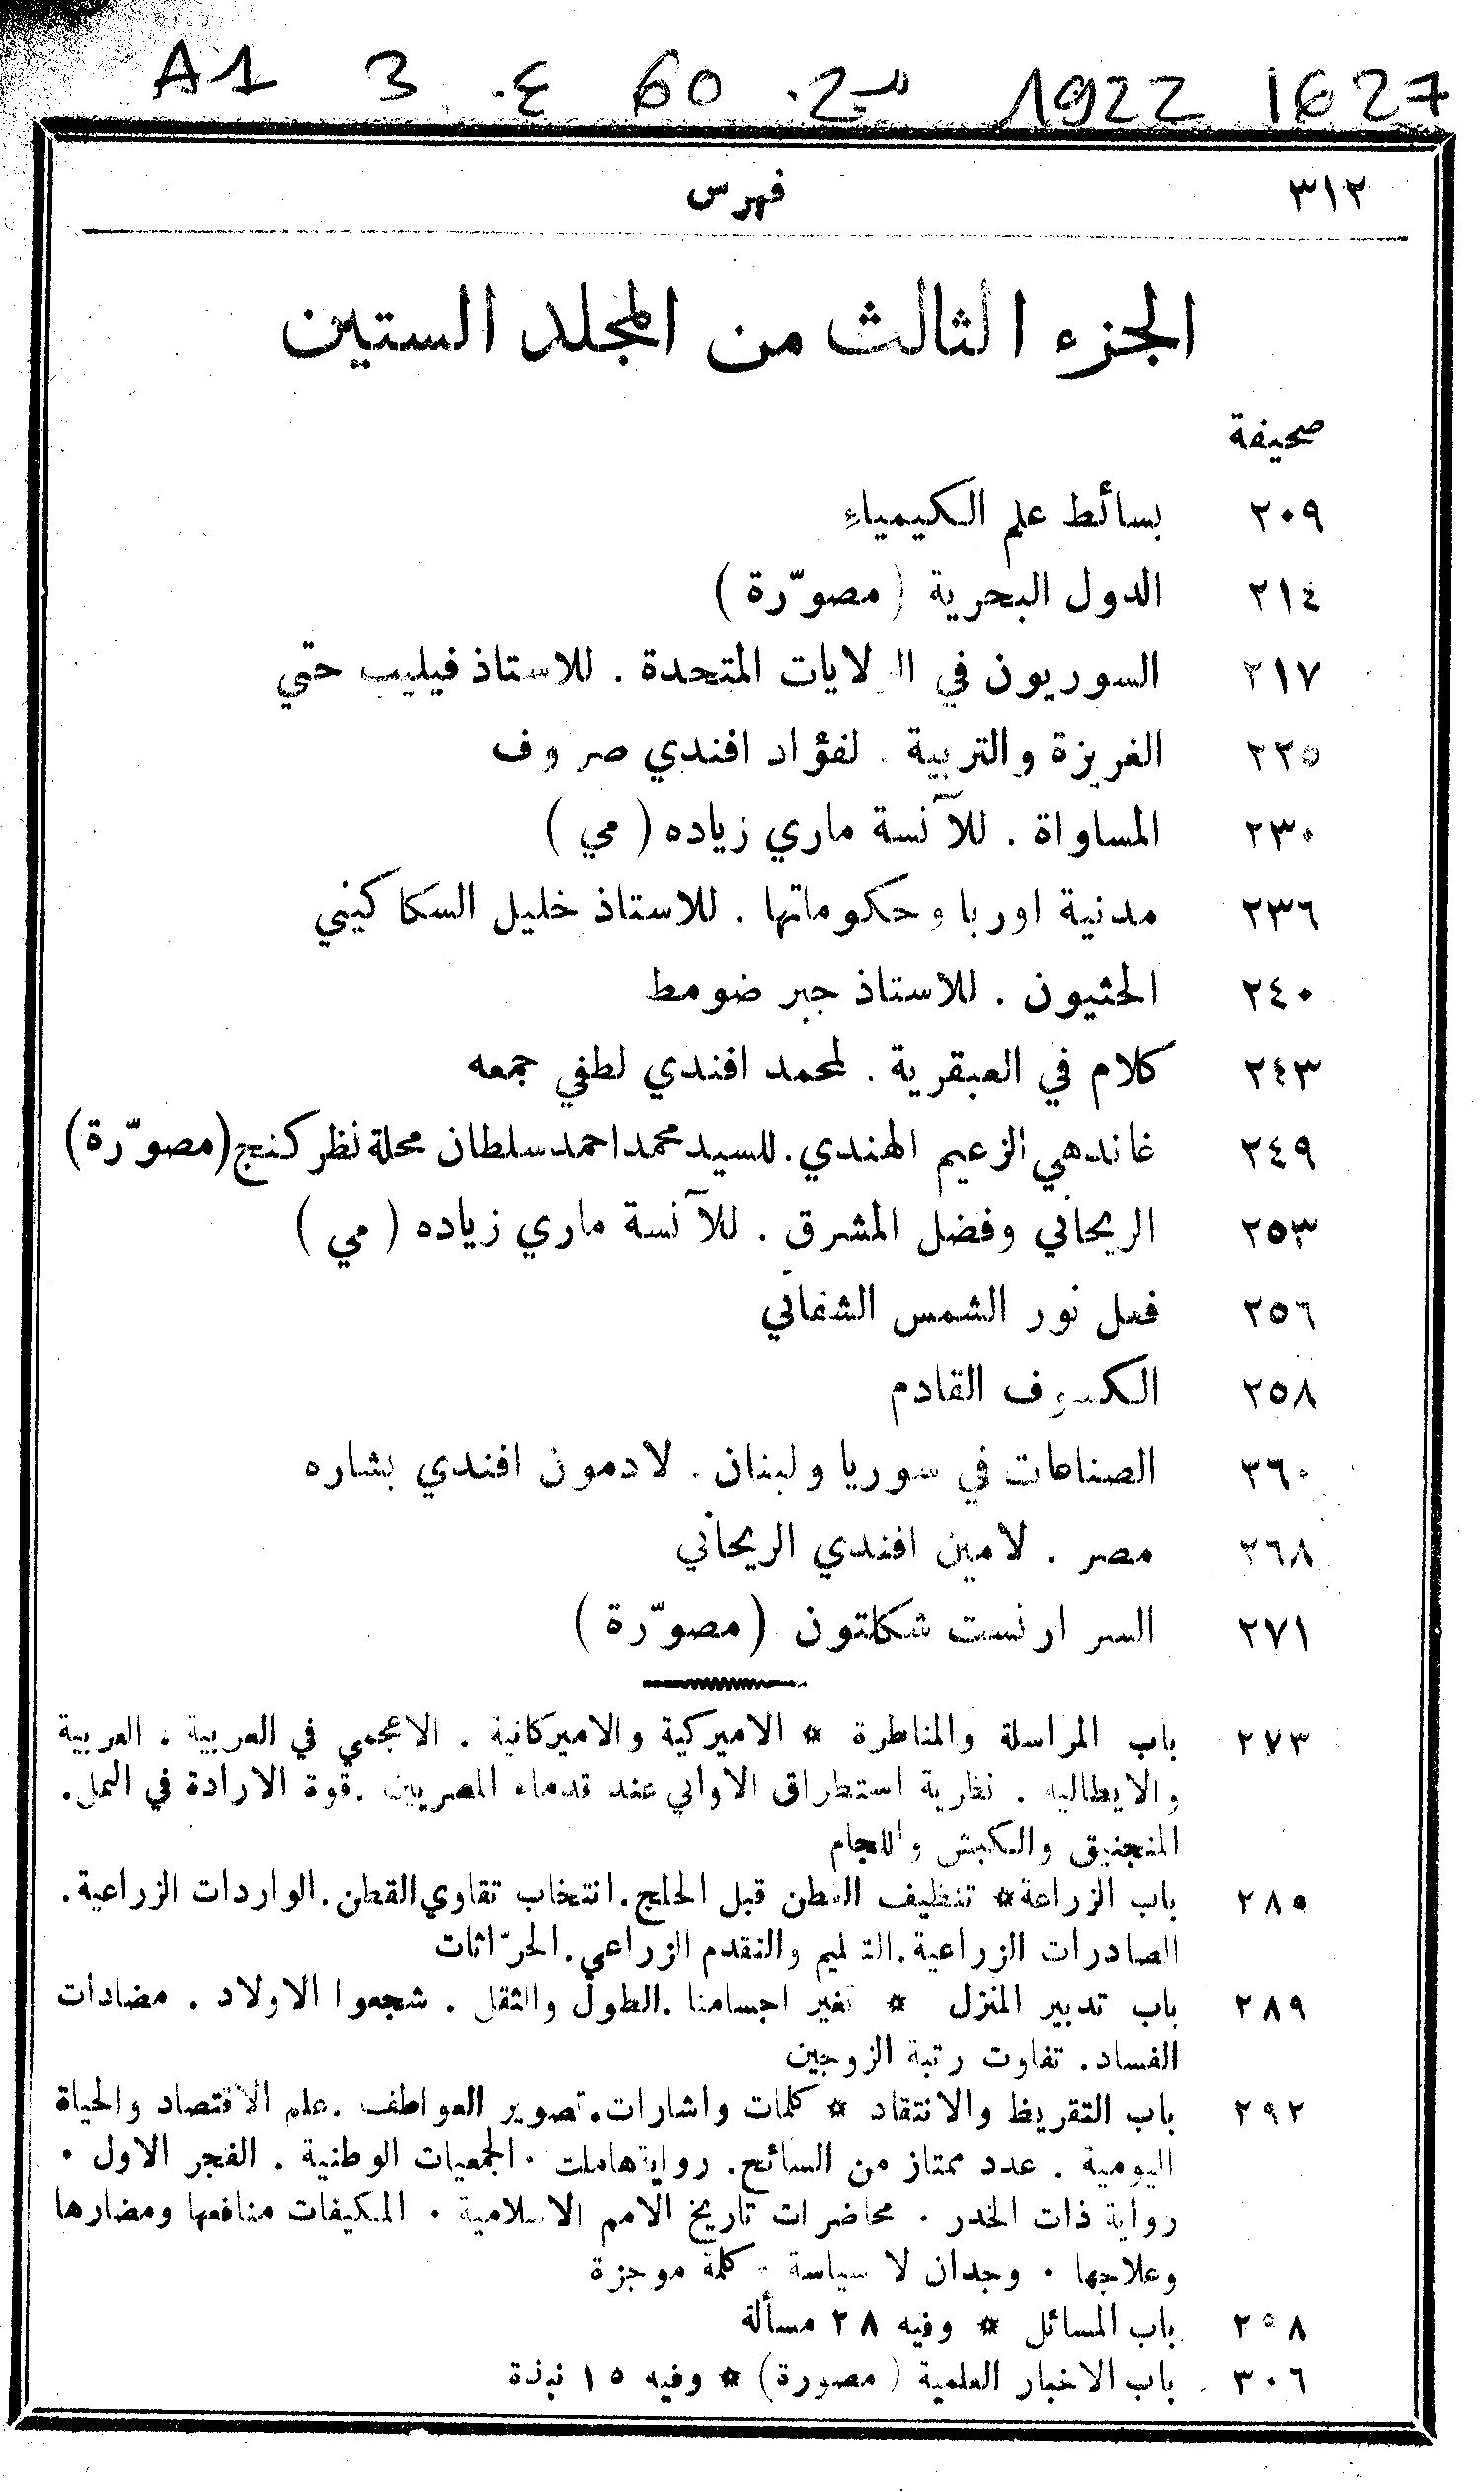 A1 3 ع. 60 س.2 1922 1627
٣١٢ فهرس
الجزء الثالث من المجلد الستين
صحيفة
٢٠٩ بسائط علم الكيمياء
٢١٤ الدول البحرية ( مصوّرة )
٢١٧ السوريون في الولايات المتحدة . للاستاذ فيليب حتّي
٢٢٥ الغريزة والتربية . لفؤاد افندي صروف
٢٣٠ المساواة . للآنسة ماري زياده ( مي )
٢٣٦ مدنية اوربا وحكوماتها . للاستاذ خليل السكاكيني
٢٤٠ الحثيون . للاستاذ جبر ضومط
٢٤٣ كلام في العبقرية . لمحمد افندي لطفي جمعه
٢٤٩ غاندهي الزعيم الهندي . للسيد محمد احمد سلطان محلة نظر كنج (مصوّرة)
٢٥٣ الريحاني وفضل المشرق . للآنسة ماري زياده ( مي )
٢٥٦ فعل نور الشمس الشفائي
٢٥٨ الكسوف القادم
٢٦٠ الصناعات في سوريا ولبنان . لادمون افندي بشاره
٢٦٨ مصر . لامين افندي الريحاني
٢٧١ السر ارنست شكلتون ( مصوّرة )
٢٧٣ باب المراسلة والمناظرة * الاميركية والاميركانية . الاعجمي في العربية . العربية
والايطاليه . نظرية استطراق الاواني عند قدماء المصريين . قوة الارادة في النمل .
المنجنيق والكبش واللجام
٢٨٥ باب الزراعة * تنظيف القطن قبل الحلج . انتخاب تقاوي القطن . الواردات الزراعية .
الصادرات الزراعية . التعليم والتقدم الزراعي . الحرّاثات
٢٨٩ باب تدبير المنزل * تغير اجسامنا . الطول والثقل . شجعوا الاولاد . مضادات
الفساد . تفاوت رتبة الزوجين
٢٩٢ باب التقريظ والانتقاد * كلمات واشارات . تصوير العواطف . علم الاقتصاد والحياة
اليومية . عدد ممتاز من السائح . رواية هاملت . الجمعيات الوطنية . الفجر الاول .
رواية ذات الخدر . محاضرات تاريخ الامم الاسلامية . المكيفات منافعها ومضارها
وعلاجها . وجدان لا سياسة . كلمة موجزة
٢٩٨ باب المسائل * وفيه ٢٨ مسألة
٣٠٦ باب الاخبار العلمية ( مصورة ) * وفيه ١٥ نبذة